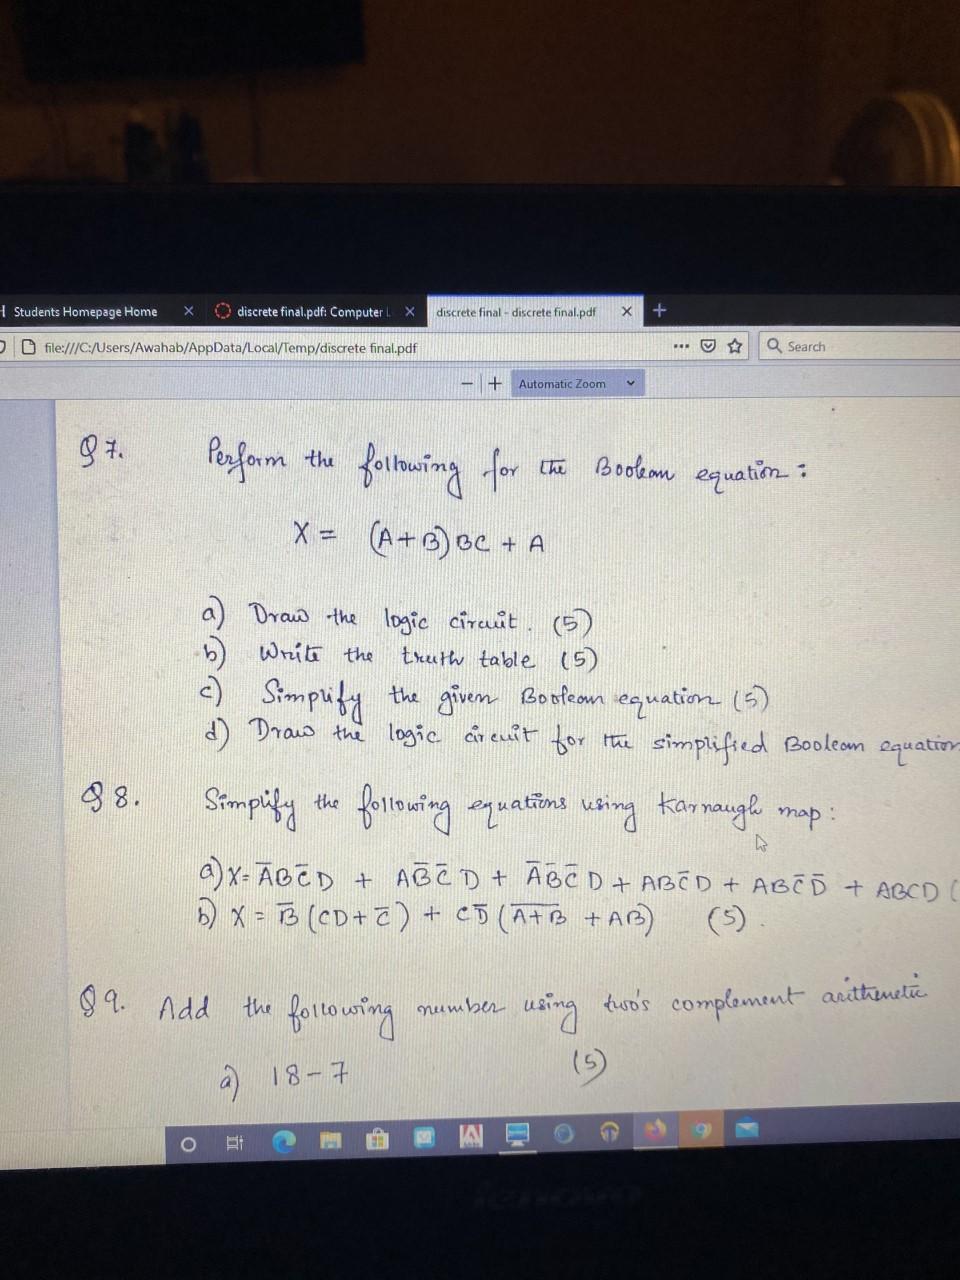 Students Homepage Home
discrete final.pdf: Computer L
discrete final - discrete final.pdf
file:///C:/Users/Awahab/AppData/Local/Temp/discrete final.pdf
Search
Automatic Zoom
Q7. Perform the following for the Boolean equation:
X = (A+B)BC + A
a) Draw the logic circuit. (5)
b) Write the truth table (5)
c) Simplify the given Boolean equation (5)
d) Draw the logic circuit for the simplified Boolean equation
Q8. Simplify the following equations using Karnaugh map:
a) X = A̅BC̅D + AB̅C̅D + A̅B̅C̅D + ABC̅D + ABC̅D̅ + ABCD (
b) X = B̅(CD+C̅) + CD̅(A̅+̅B̅ + AB) (5).
Q9. Add the following number using two's complement arithmetic
(5)
a) 18-7
lenovo